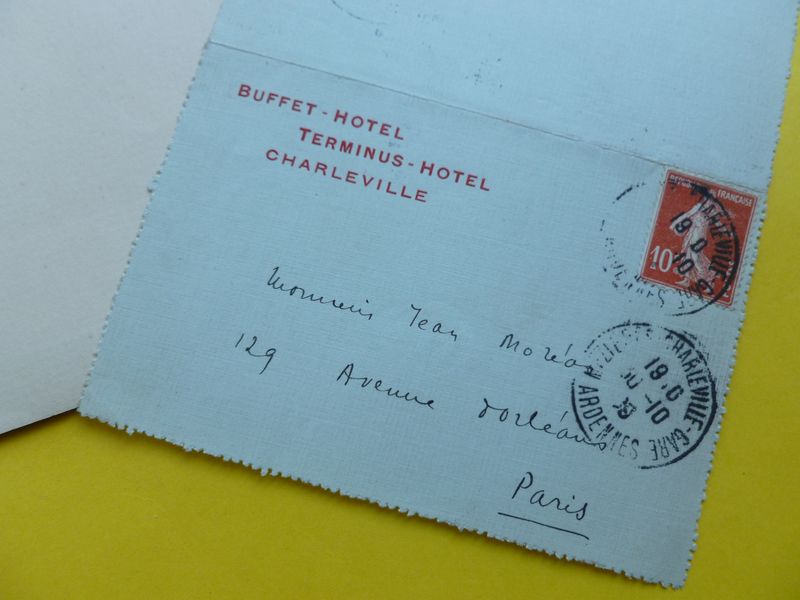 BUFFET-HOTEL
TERMINUS-HOTEL
CHARLEVILLE
REPUBLIQUE FRANÇAISE
10
CHARLEVILLE-G
19
10
Monsieur Jean Moréas
129 Avenue d'orléans
Paris
MEZIERES-CHARLEVILLE-GARE
19
-10
ARDENNES